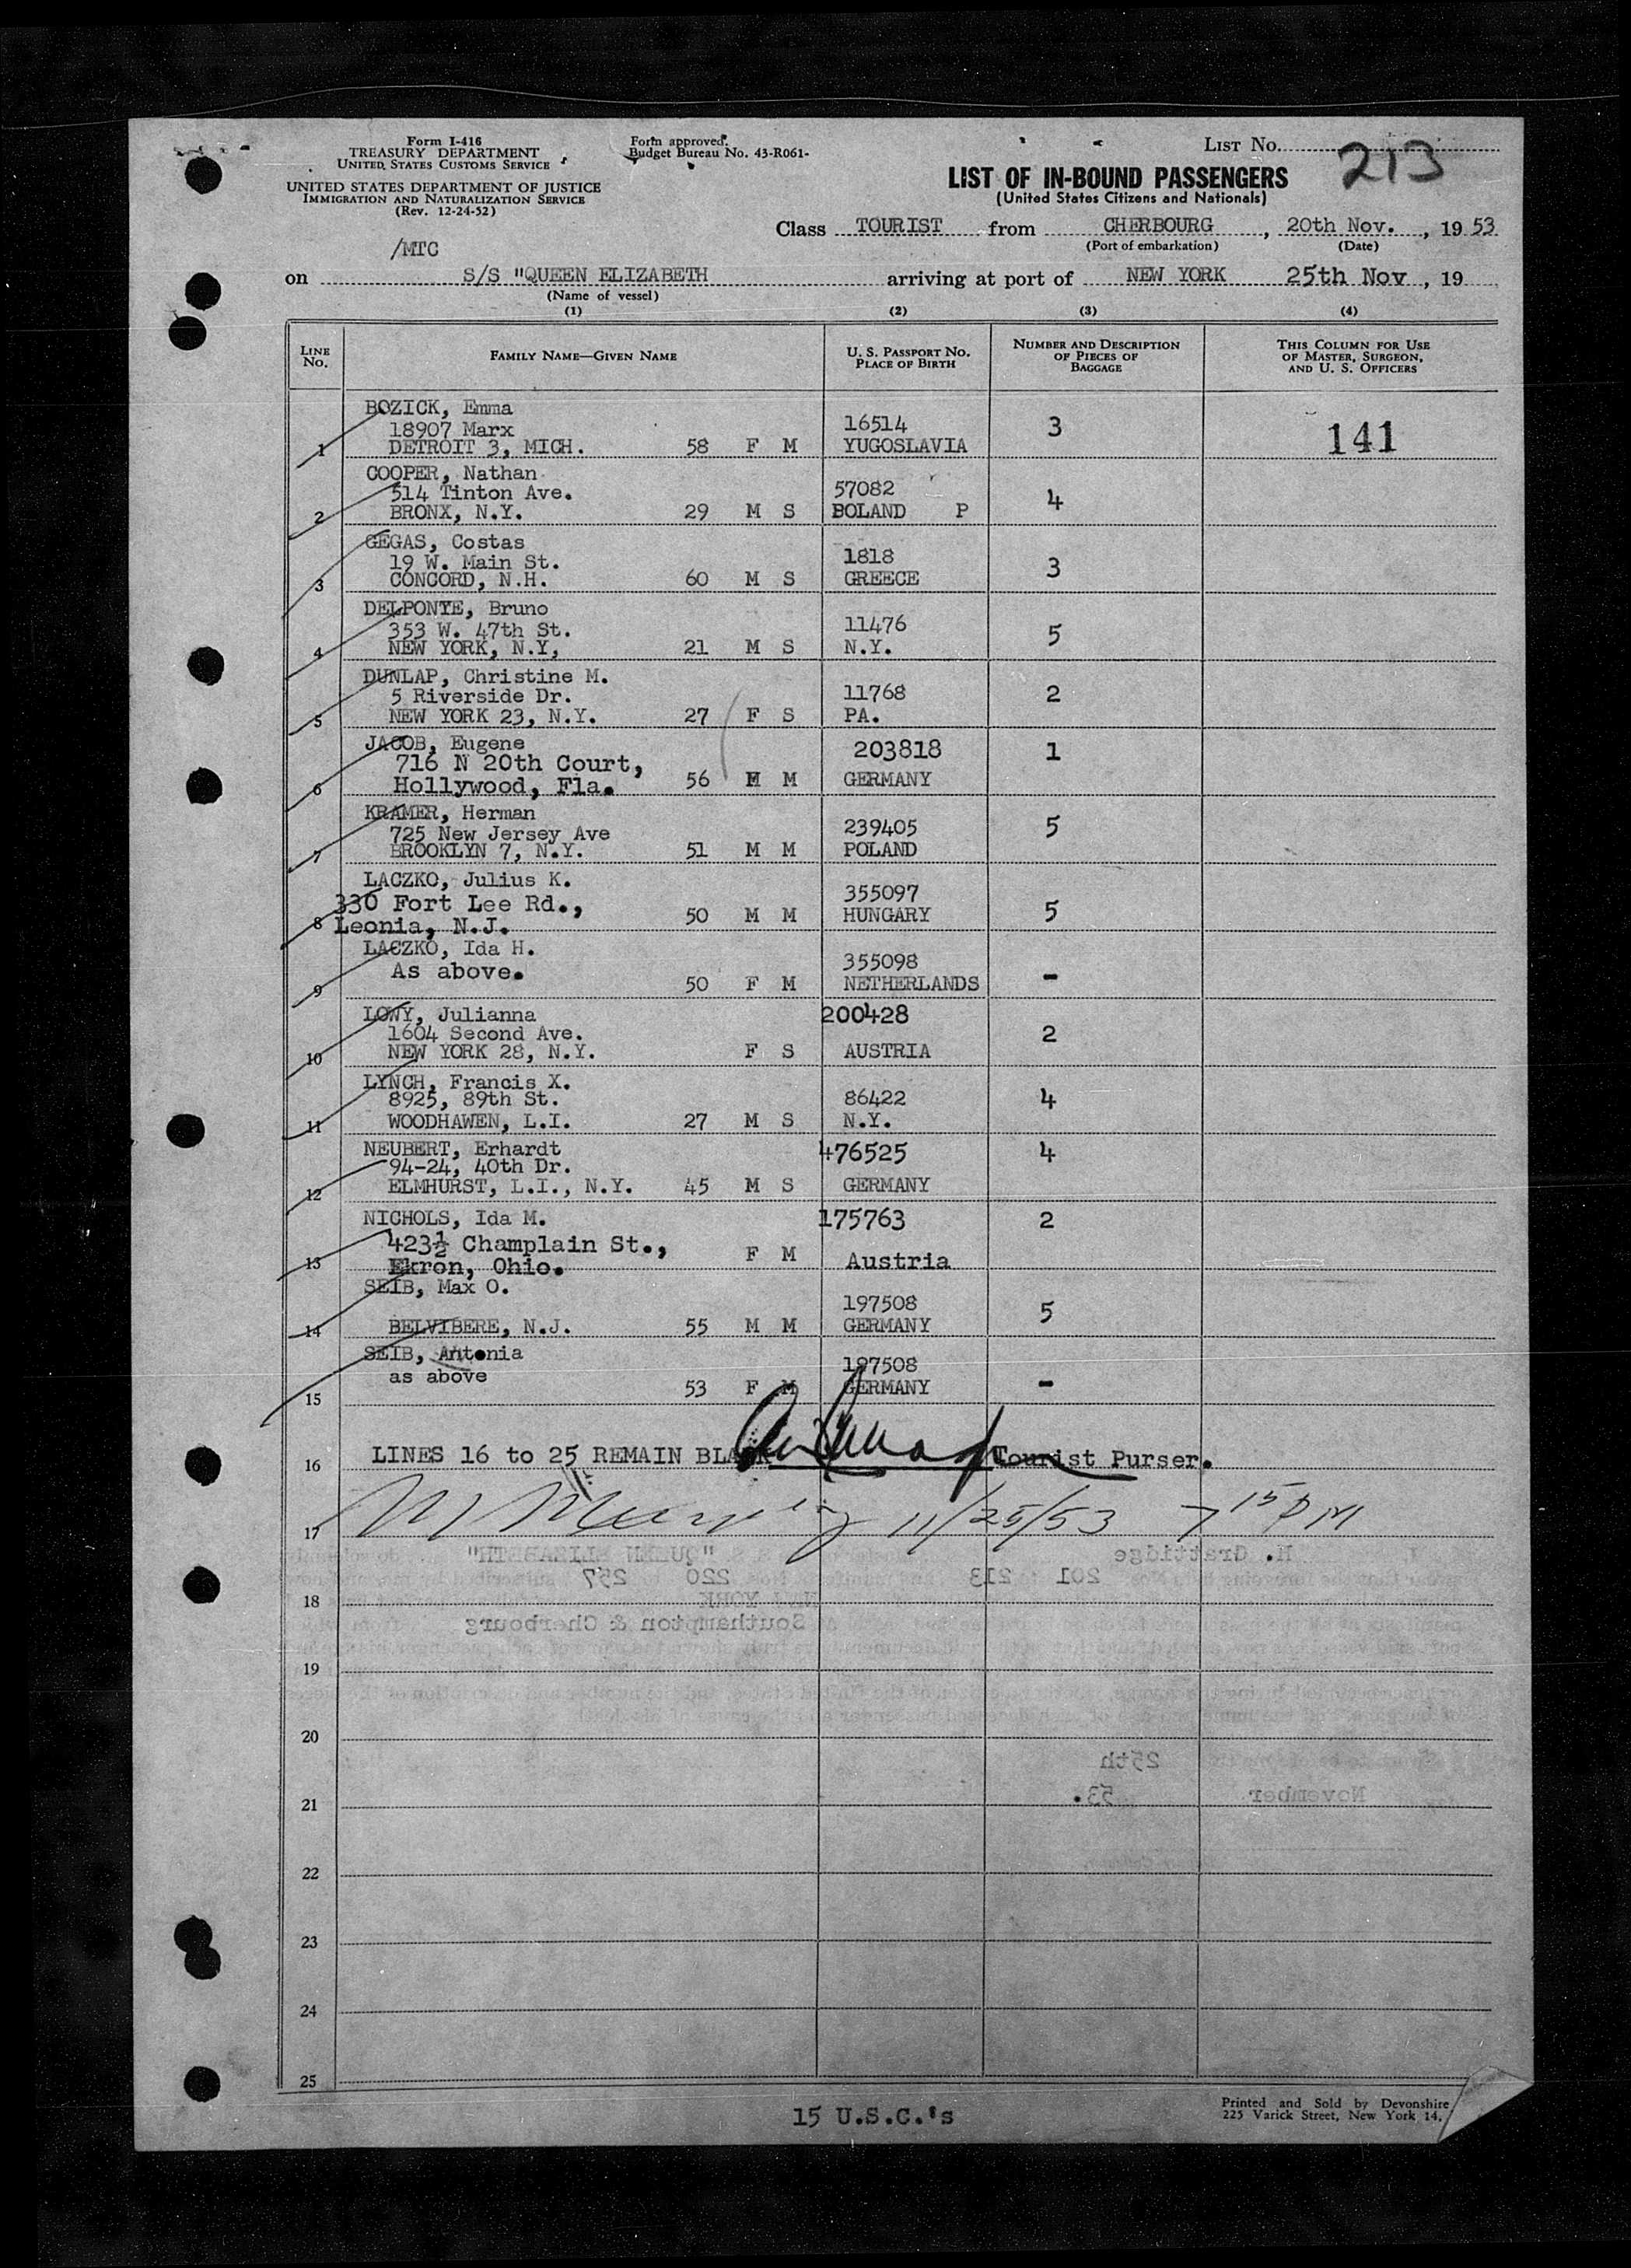 Form I-416
TREASURY DEPARTMENT
UNITED STATES CUSTOMS SERVICE
UNITED STATES DEPARTMENT OF JUSTICE
IMMIGRATION AND NATURALIZATION SERVICE
(Rev. 12-24-52)
Form approved.
Budget Bureau No. 43-R061-
LIST No. 213
LIST OF IN-BOUND PASSENGERS
(United States Citizens and Nationals)
Class TOURIST from CHERBOURG, 20th Nov., 19 53
(Port of embarkation) (Date)
/MTC
on S/S "QUEEN ELIZABETH arriving at port of NEW YORK 25th Nov, 19
(Name of vessel)
(1) (2) (3) (4)
LINE No. FAMILY NAME—GIVEN NAME U. S. PASSPORT No. PLACE OF BIRTH NUMBER AND DESCRIPTION OF PIECES OF BAGGAGE THIS COLUMN FOR USE OF MASTER, SURGEON, AND U. S. OFFICERS
BOZICK, Emma
18907 Marx 16514 3 141
1 DETROIT 3, MICH. 58 F M YUGOSLAVIA
COOPER, Nathan
514 Tinton Ave. 57082 4
2 BRONX, N.Y. 29 M S BOLAND P
GEGAS, Costas
19 W. Main St. 1818 3
3 CONCORD, N.H. 60 M S GREECE
DELPONTE, Bruno
353 W. 47th St. 11476 5
4 NEW YORK, N.Y, 21 M S N.Y.
DUNLAP, Christine M.
5 Riverside Dr. 11768 2
5 NEW YORK 23, N.Y. 27 F S PA.
JACOB, Eugene 203818 1
716 N 20th Court,
6 Hollywood, Fla. 56 M M GERMANY
KRAMER, Herman
725 New Jersey Ave 239405 5
7 BROOKLYN 7, N.Y. 51 M M POLAND
LACZKO, Julius K.
330 Fort Lee Rd., 355097
8 Leonia, N.J. 50 M M HUNGARY 5
LACZKO, Ida H.
As above. 355098 -
9 50 F M NETHERLANDS
LOWY, Julianna 200428
1604 Second Ave. 2
10 NEW YORK 28, N.Y. F S AUSTRIA
LYNCH, Francis X.
8925, 89th St. 86422 4
11 WOODHAWEN, L.I. 27 M S N.Y.
NEUBERT, Erhardt 476525 4
94-24, 40th Dr.
12 ELMHURST, L.I., N.Y. 45 M S GERMANY
NICHOLS, Ida M. 175763 2
423½ Champlain St., F M
13 Ekron, Ohio. Austria
SEIB, Max O.
197508 5
14 BELVIBERE, N.J. 55 M M GERMANY
SEIB, Antonia
as above 197508
15 53 F M GERMANY -
16 LINES 16 to 25 REMAIN BLANK Tourist Purser.
17 11/25/53 7 15 PM
I, H. Grattidge "QUEEN ELIZABETH"
201 213 220 257
18 NEW YORK
Southampton & Cherbourg
19
20
25th
November 53.
21
22
23
24
25
15 U.S.C.'s
Printed and Sold by Devonshire
225 Varick Street, New York 14,